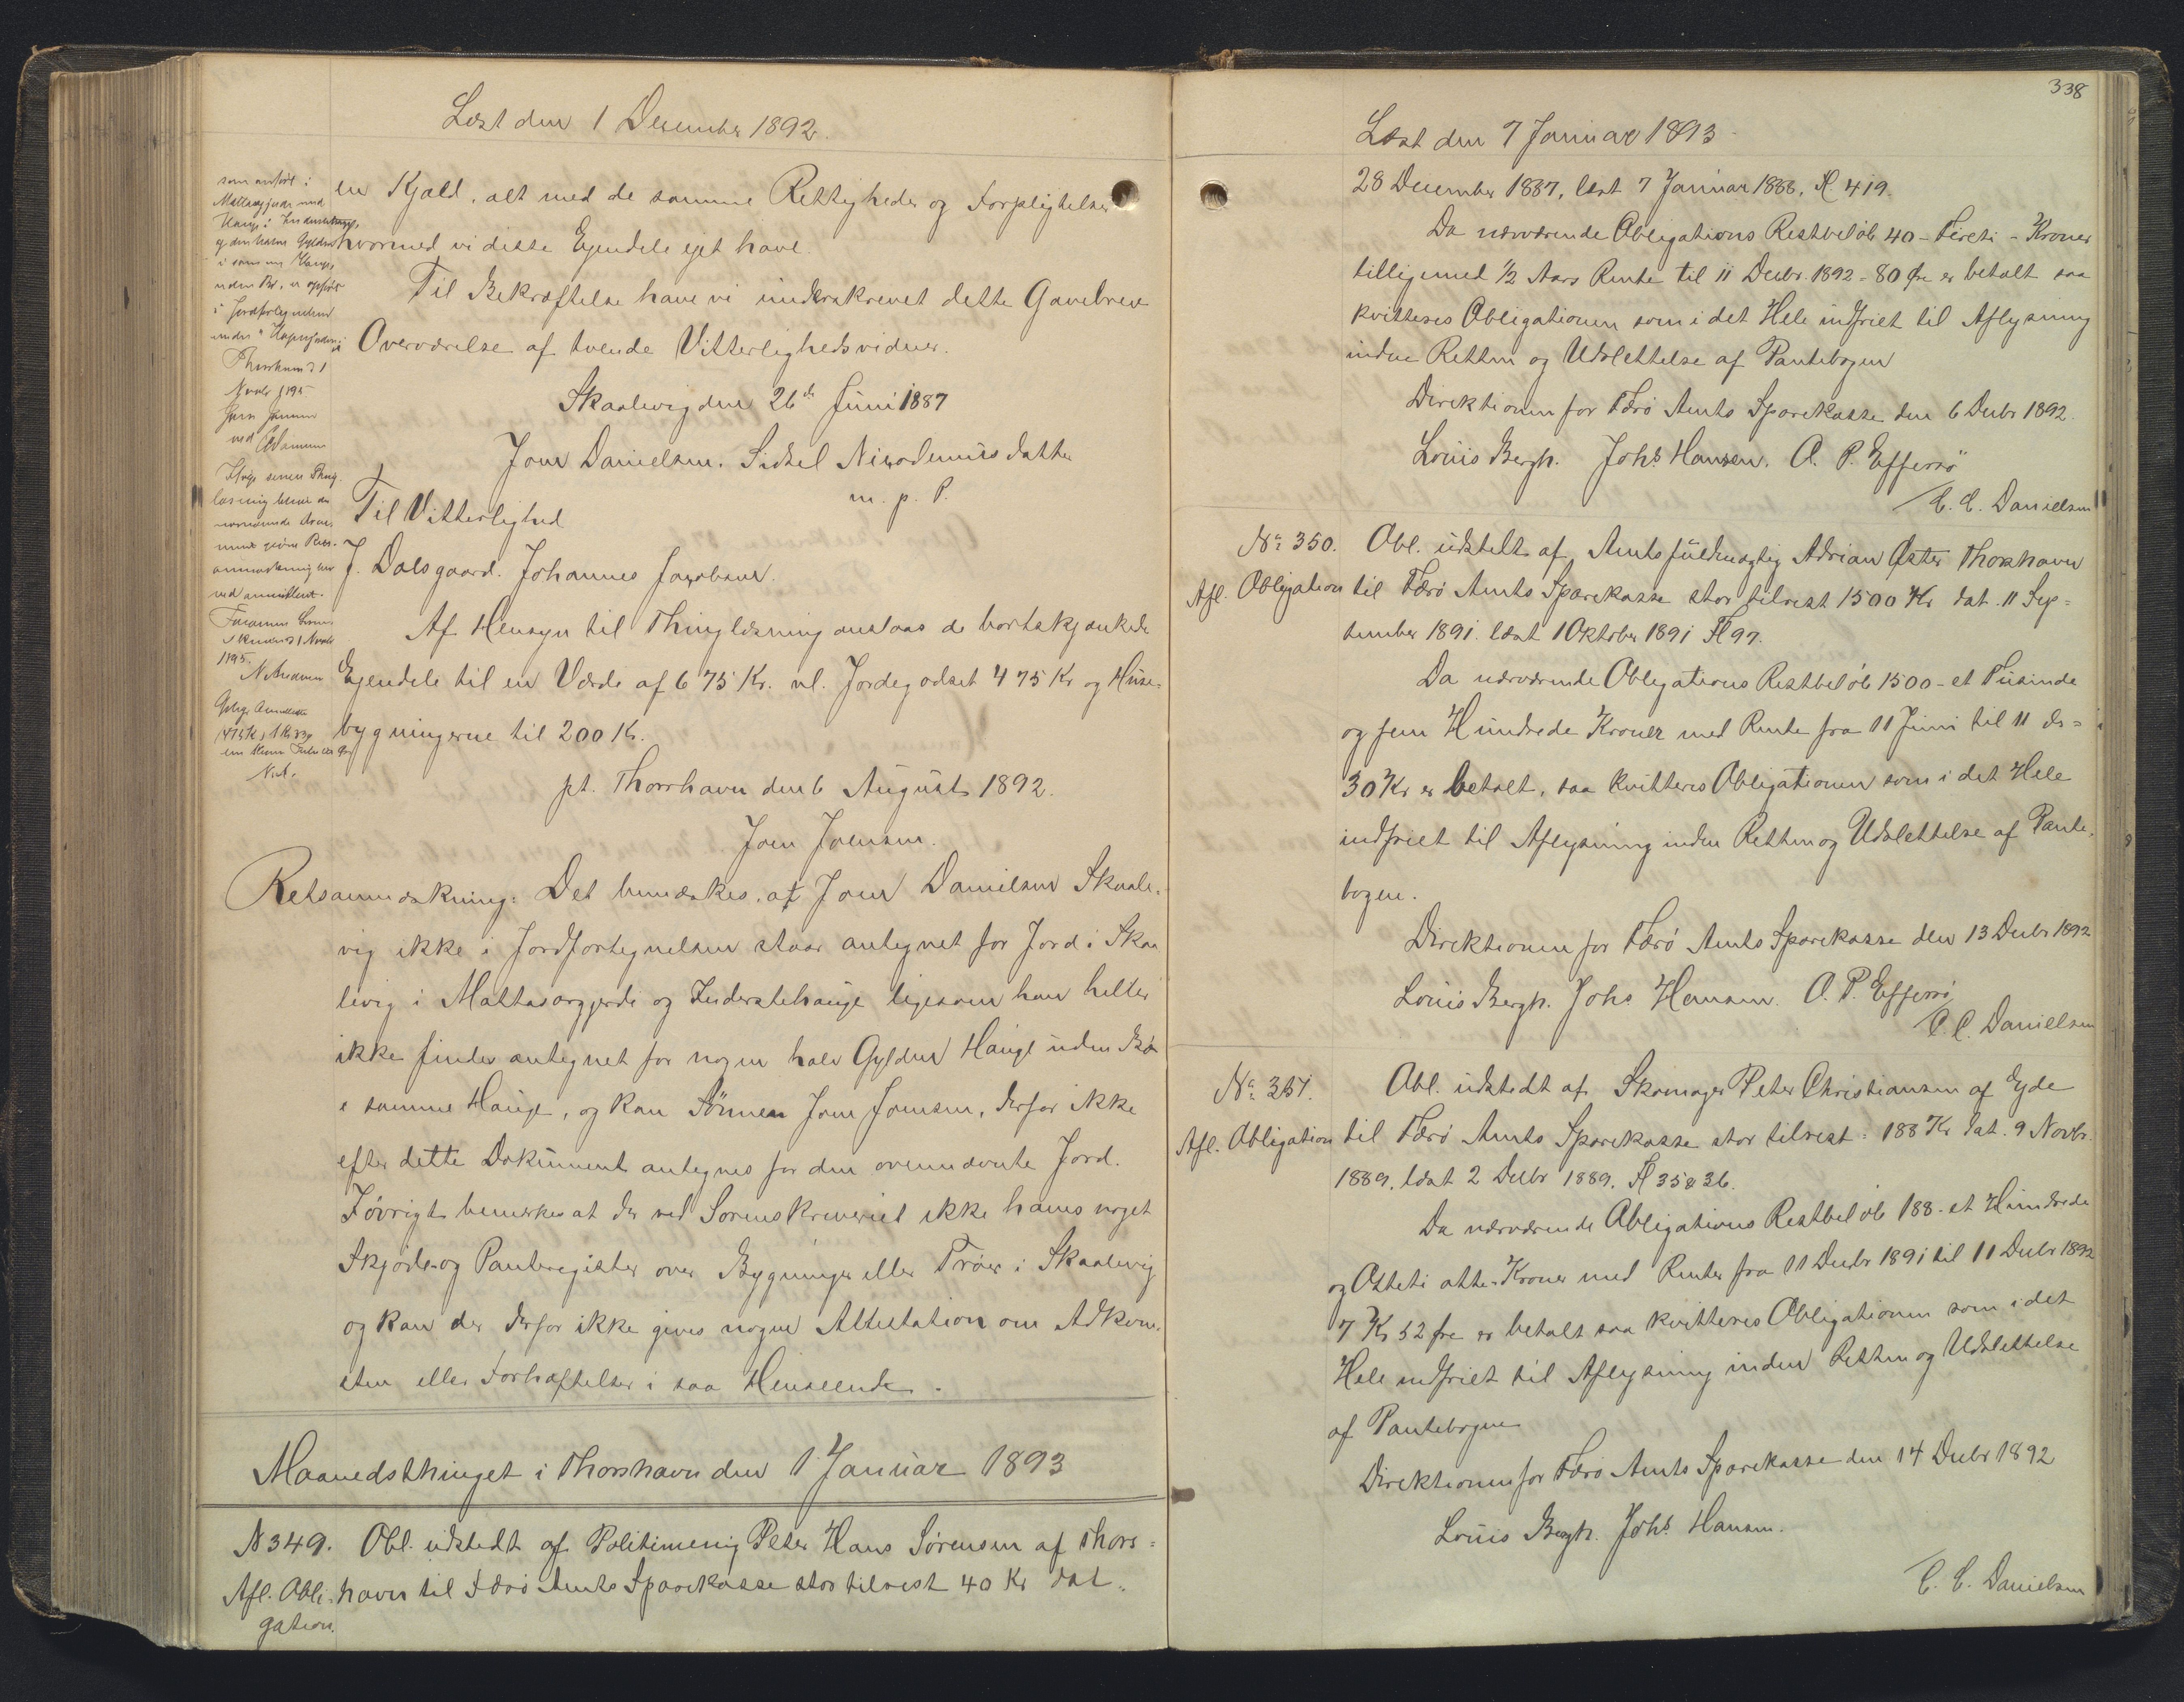 Læst den 1 December 1892.
en Kjæld, alt med de samme Rettigheder og Forpligtelser
hvormed vi disse Ejendele ejet have.
Til Bekræftelse have vi underskrevet dette Gavebrev
i Overværelse af tvende Vitterlighedsvidner.
Skaalevig den 26de Juni 1887
Joen Danielsen. Sidsel Nicodemusdatter
m. p. P.
Til Vitterlighed
J. Dalsgaard. Johannes Jacobsen.
Af Hensyn til Thinglæsning anslaas de bortskjænkede
Ejendele til en Værdi af 675 Kr. nl. Jordegodset 475 Kr og Huse-
bygningerne til 200 Kr.
pt. Thorshavn den 6 August 1892.
Joen Joensen.
Retsanmærkning: Det bemærkes, at Joen Danielsen Skaale-
vig ikke i Jordfortegnelsen staar antegnet for Jord i Skaa
levig i Mattasargjerde og Inderstehauge ligesom han heller
ikke findes antegnet for nogen halv Gylden Hauge uden Bø
i samme Hauge, og kan Sönnen Joen Joensen, derfor ikke
efter dette Dokument antegnes for den ovennævnte Jord.
Iøvrigt bemerkes at der ved Sorenskriveriet ikke haves noget
Skjøde- og Panteregister over Bygninger eller Tröer i Skaalevig
og kan der derfor ikke gives nogen Attestation om Adkom-
sten eller Forhæftelser i saa Henseende.
som anført i
i samme Hauge,
uden Bø, er opført
i Jordfortegnelsen
Thorshavn d 1
Novbr 1895
Maanedsthinget i Thorshavn den 1 Januar 1893
N 349. Obl. udstedt af Politimenig Peter Hans Sørensen af Thors-
Afl. Obli- havn til Færø Amts Sparekasse stor tilrest 40 Kr dat.
gation.
338
Læst den 7 Januar 1893
28 December 1887, læst 7 Januar 1888, Fl 419.
Da nærværende Obligations Restbeløb 40 - Fireti - Kroner
tilligemed 1/2 Aars Rente til 11 Decbr. 1892 - 80 Øre er betalt saa
kvitteres Obligationen som i det Hele indfriet til Aflysning
inden Retten og Udslettelse af Pantebogen
Direktionen for Færö Amts Sparekasse den 6 Decbr 1892.
Louis Bergh. Johs Hansen. O. P. Effersö
C. C. Danielsen
No 350. Obl. udstedt af Amtsfuldmægtig Adrian Øster Thorshavn
Afl. Obligation til Færö Amts Sparekasse stor tilrest 1500 Kr dat. 11 Sep-
tember 1891. læst 1 Oktober 1891 Fl 97.
Da nærværende Obligations Restbelöb 1500 - et Tusinde
og fem Hundrede Kroner med Rente fra 11 Juni til 11 ds -
30 Kr er betalt, saa kvitteres Obligationen som i det Hele
indfriet til Aflysning inden Retten og Udslettelse af Pante-
bogen.
Direktionen for Færö Amts Sparekasse den 13 Decbr 1892
Louis Bergh. Johs Hansen. O. P. Effersö
C. C. Danielsen
No 351. Obl. udstedt af Skomager Peter Christiansen af Ejde
Afl. Obligation til Færö Amts Sparekasse stor tilrest: 188 Kr dat. 9 Novbr.
1889. læst 2 Decbr 1889. Fl 35 & 36.
Da nærværende Obligations Restbelöb 188 - et Hundrede
og Otteti otte - Kroner med Renter fra 11 Decbr 1891 til 11 Decbr 1892
7 Kr 52 Øre er betalt saa kvitteres Obligationen som i det
Hele indfriet til Aflysning inden Retten og Udslettelse
af Pantebogen
Direktionen for Færö Amts Sparekasse den 14 Decbr 1892
Louis Bergh. Johs Hansen.
C. C. Danielsen